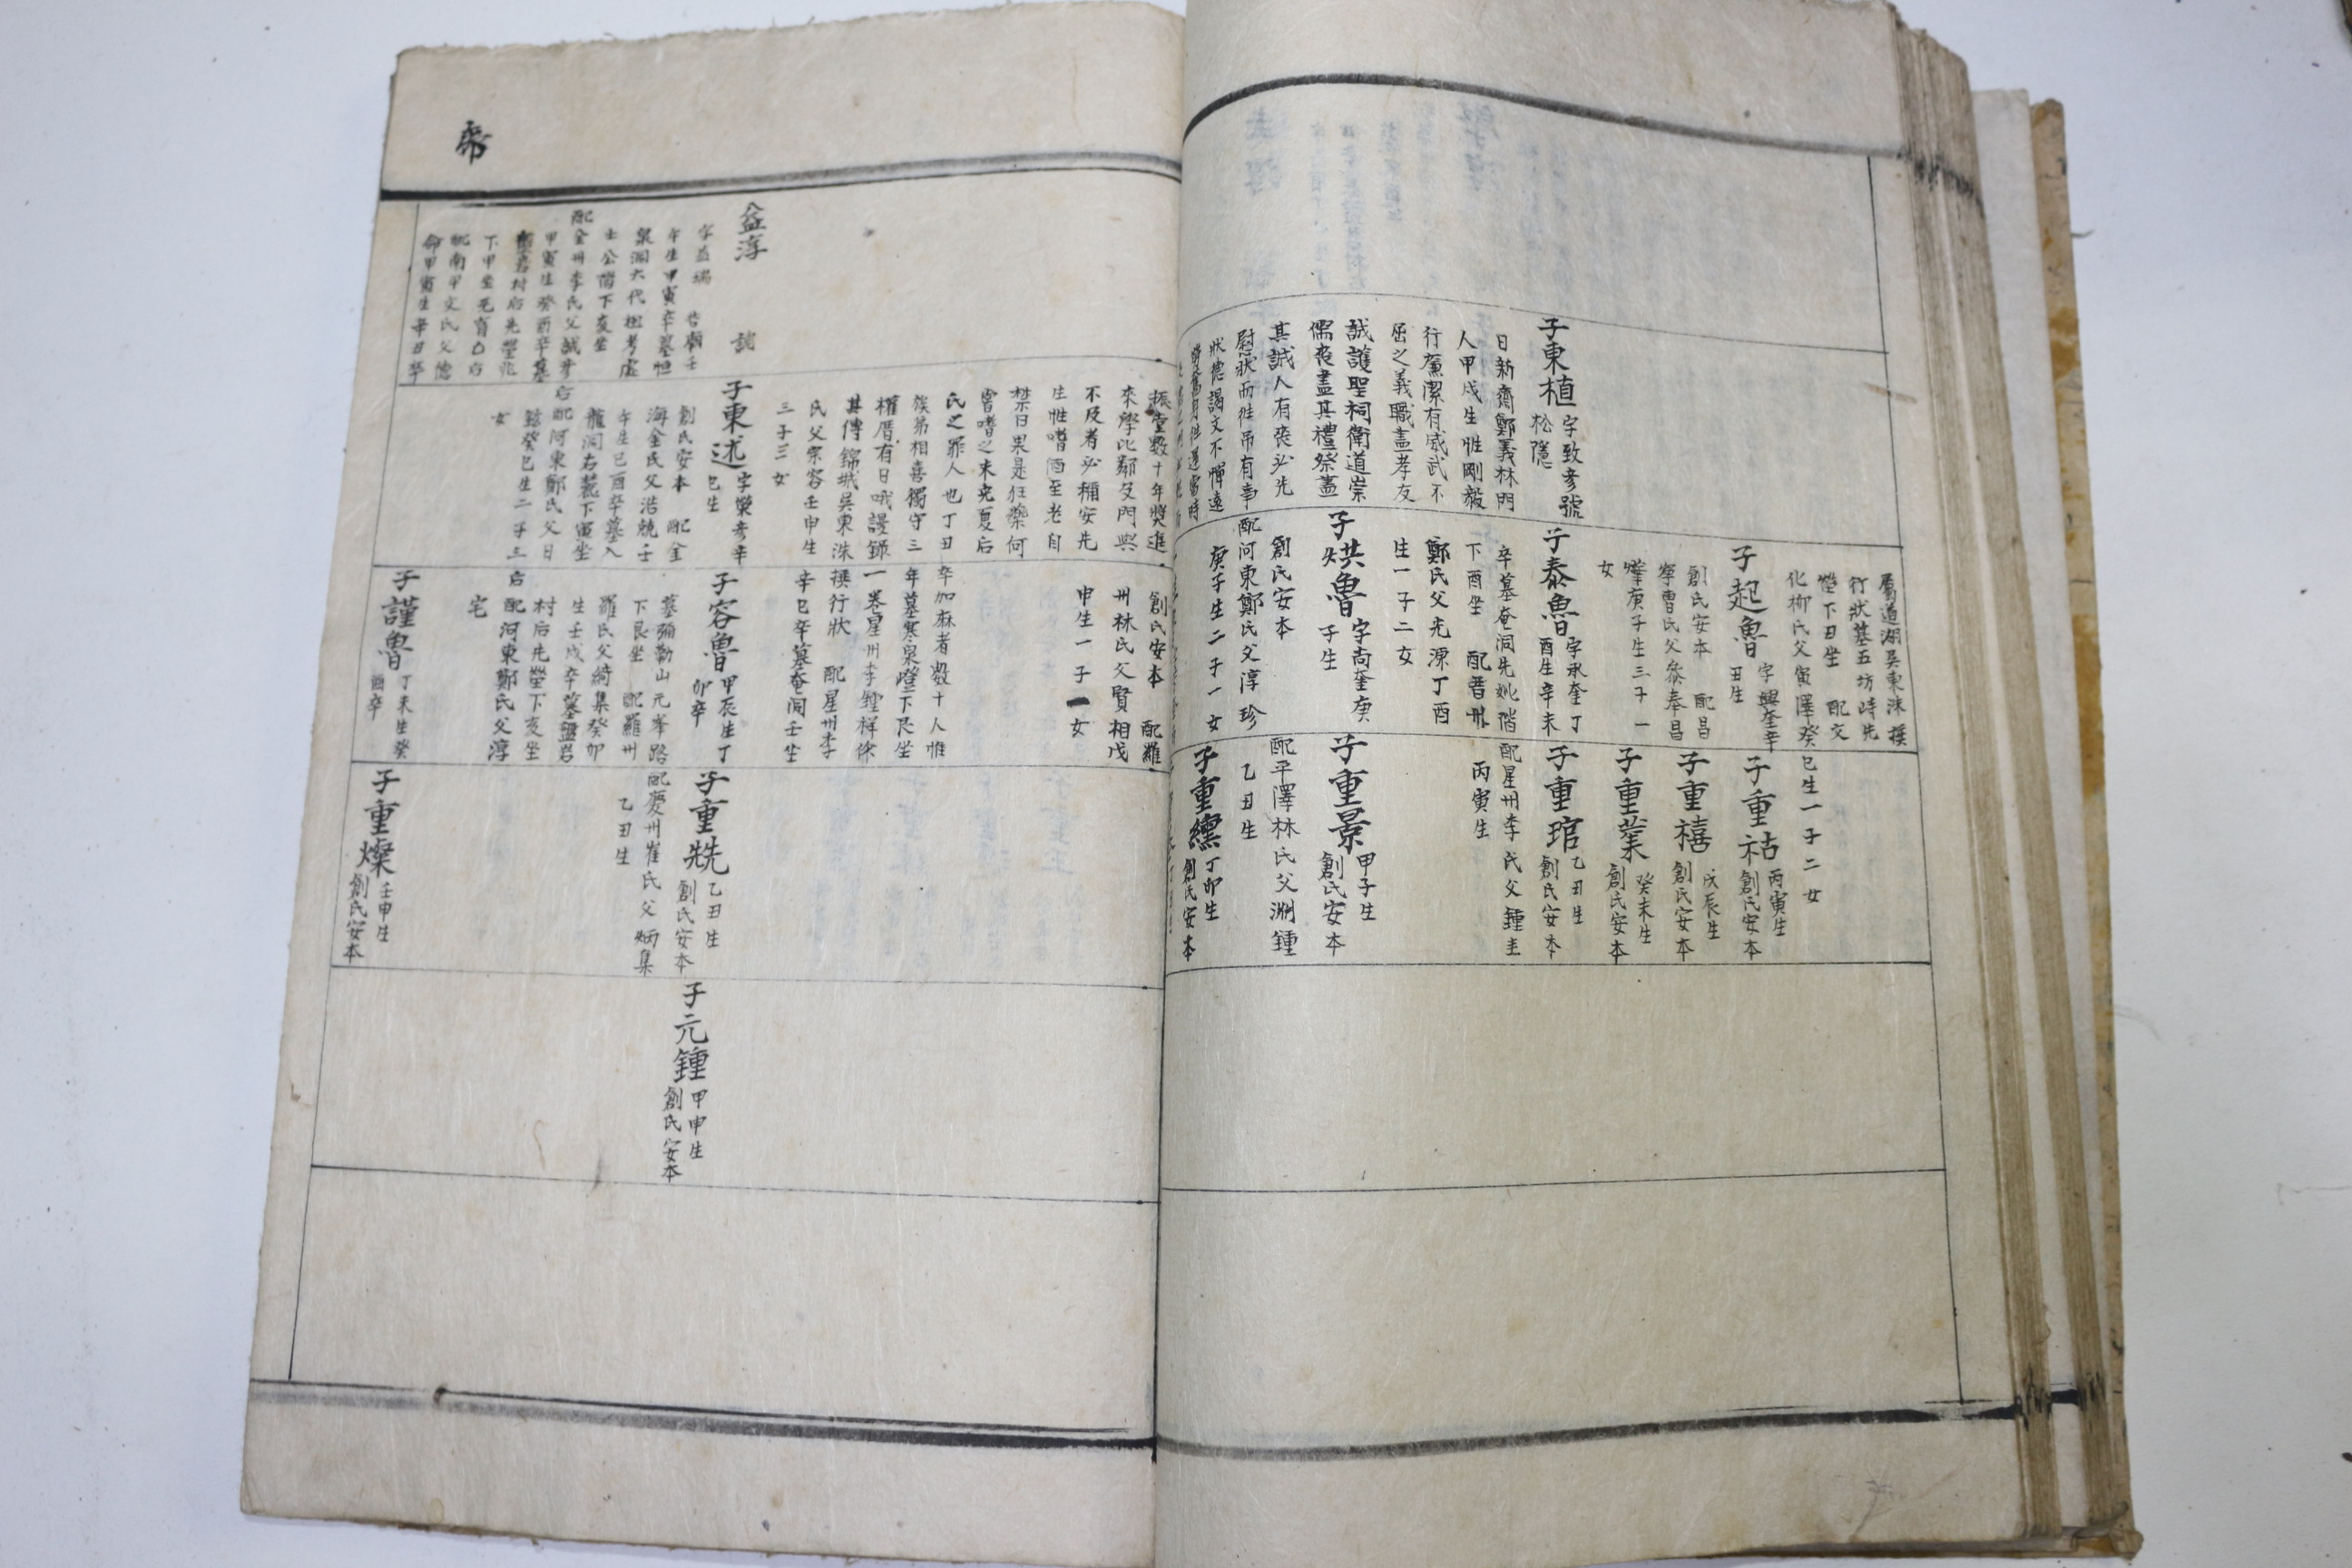 屬道湖吳東洙撰
行狀墓五坊峙先
塋下丑坐 配文
化柳氏父寅澤癸
巳生一子二女
子起魯 字興奎辛
丑生
創氏安本 配昌
寧曹氏父奉昌
燁庚子生三子一
女
子重祜 丙寅生
創氏安本
子重禧 戊辰生
創氏安本
子重業 癸未生
創氏安本
子東植 字致彦號
松隱
日新齋鄭義林門
人甲戌生性剛毅
行廉潔有威武不
屈之義職盡孝友
誠護聖祠衛道崇
儒喪盡其禮祭盡
其誠人有喪必先
慰狀而往吊有幸
狀德謁文不憚遠
子泰魯 字永奎丁
酉生辛未
卒墓奄洞先妣階
下酉坐 配晋州
鄭氏父光源丁酉
生一子二女
子重琯 乙丑生
創氏安本
配星州李氏父鍾圭
丙寅生
子烘魯 字尚奎庚
子生
創氏安本
配河東鄭氏父淳珍
庚子生二子一女
子重景 甲子生
創氏安本
配平澤林氏父淵鍾
乙丑生
子重纁 丁卯生
創氏安本
帋
振童數十年獎進
來學比鄰及門與
不及者必稱安先
生性嗜酒至老自
禁曰果是狂藥何
曾嗜之未免夏后
氏之罪人也丁丑
卒加麻者數十人惟
族弟相喜獨守三
年墓寒泉嶝下艮坐
權厝有日哦謾錄
一卷星州李鍾祥
其傳錦城吳東洙
撰行狀 配星州李
氏父宗容壬申生
辛巳卒墓奄洞壬坐
三子三女
創氏安本 配羅
州林氏父賢相戊
申生一子一女
益淳
字益瑞
午生甲寅卒墓
泉洞六代祖考處
士公階下亥坐
配金州李氏父誠彦
甲寅生癸酉卒墓
岩村后先塋兆
下甲坐无育
配南平文氏父德
命甲寅生辛丑卒
子東述 字樂彦辛
巳生
創氏安本 配金
海金氏父浩兢壬
午生己酉卒墓入
龍洞右麓下寅坐
后配河東鄭氏父日
鉉癸巳生二子三
女
子容魯 甲辰生丁
卯卒
墓彌勒山元峯路
下艮坐 配羅州
羅氏父綺集癸卯
生壬戌卒墓盤岩
村后先塋下亥坐
后配河東鄭氏父淳
宅
子重兟 乙丑生
創氏安本
配慶州崔氏父炳集
乙丑生
子元鍾 甲申生
創氏安本
子謹魯 丁未生癸
酉卒
子重燦 壬申生
創氏安本